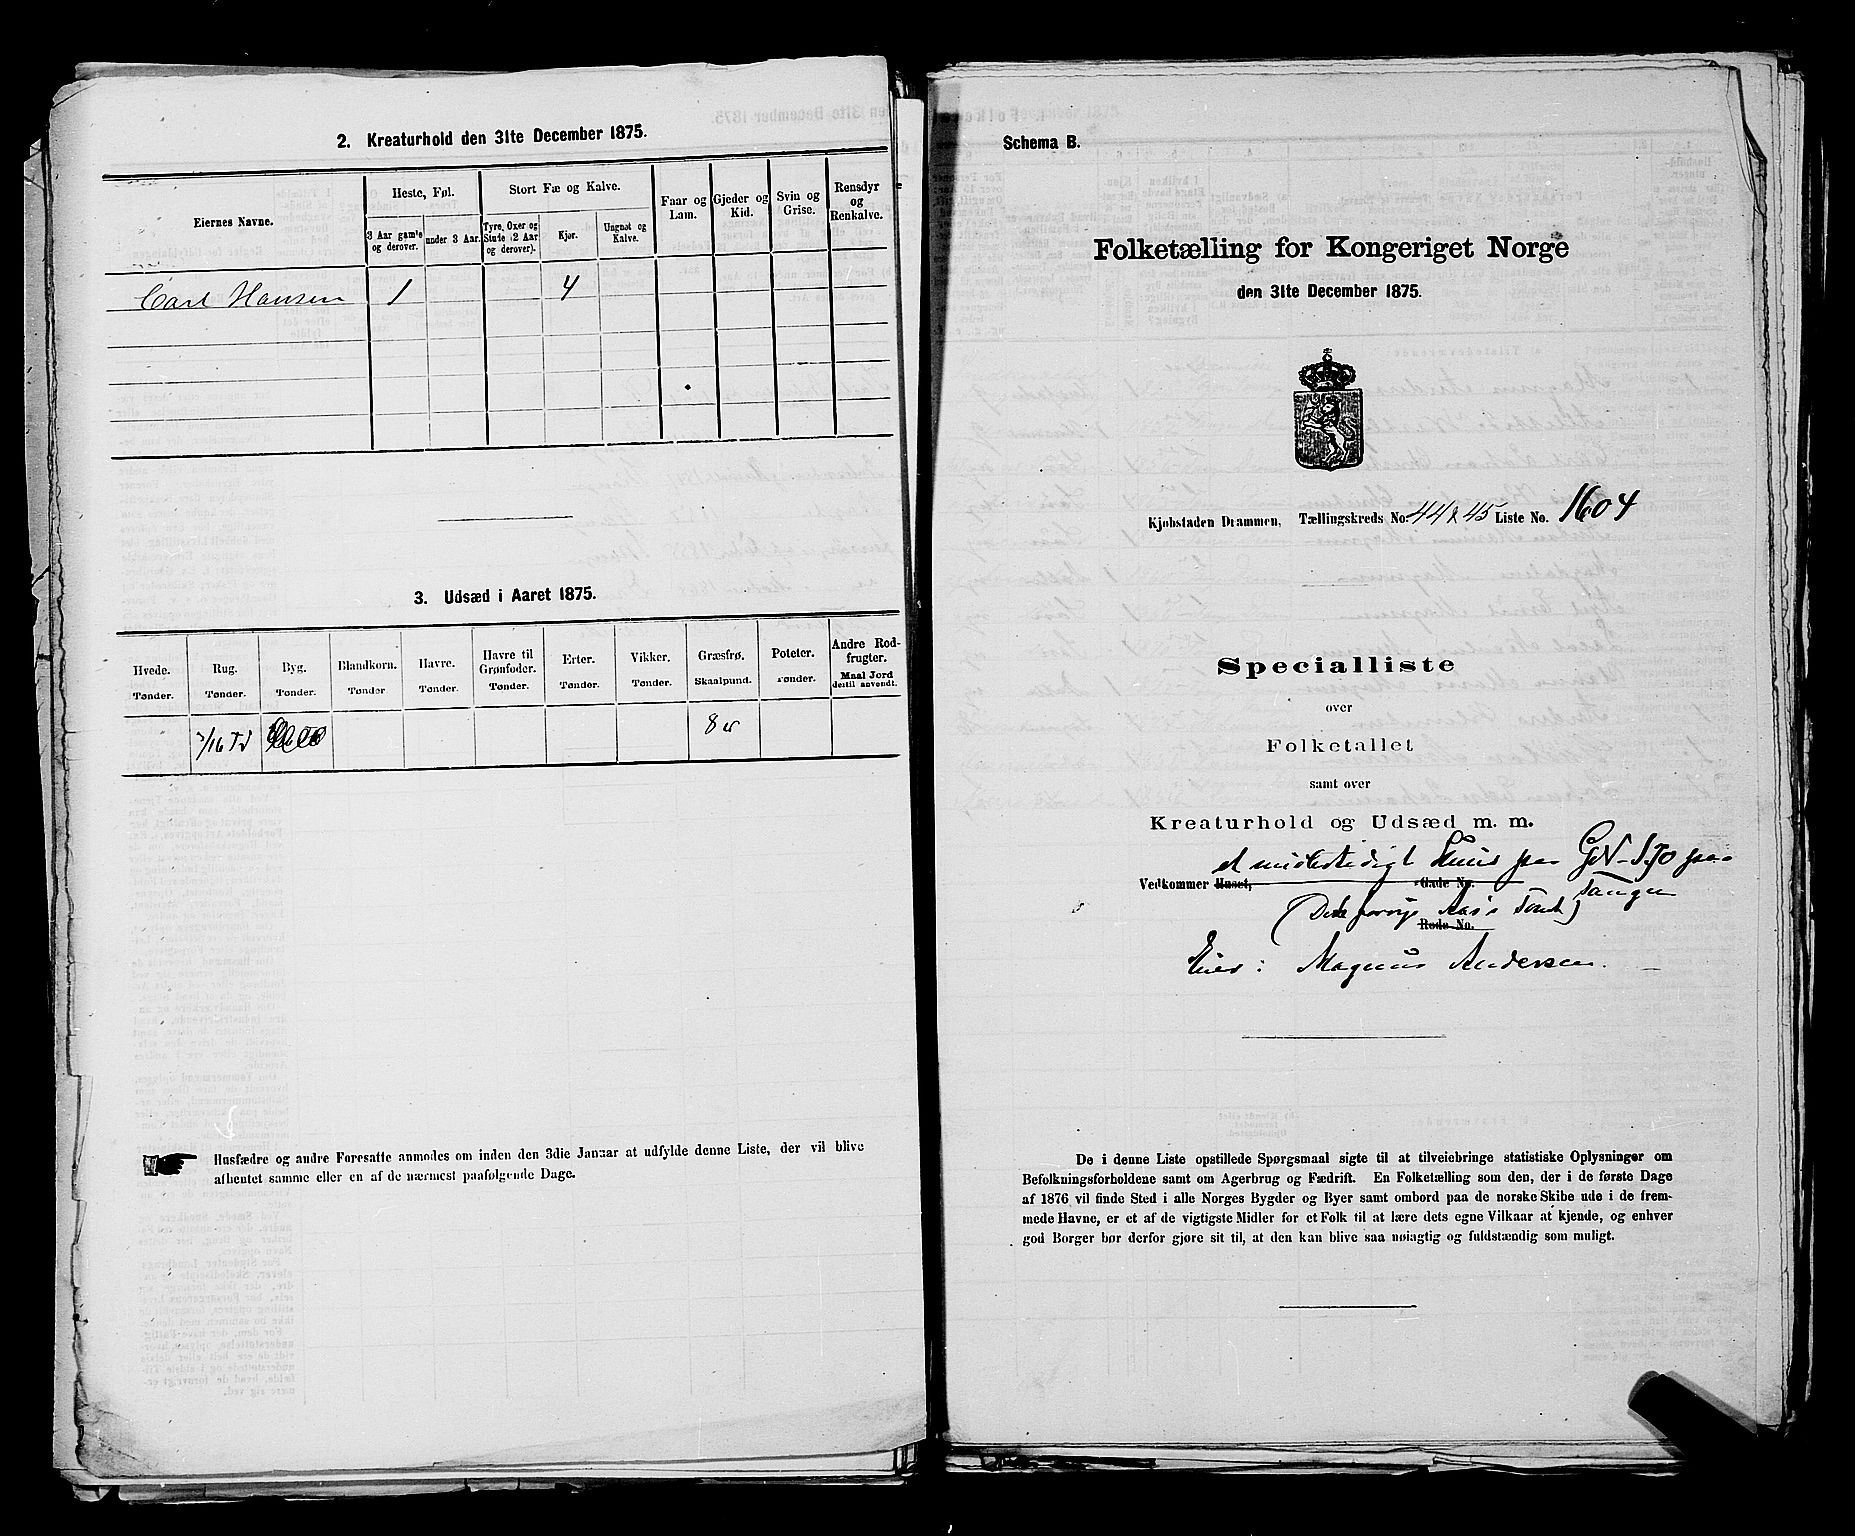 2. Kreaturhold den 31te December 1875.
Eiernes Navne.
Heste, Føl.
Stort Fæ og Kalve.
Faar og Lam.
Gjeder og Kid.
Svin og Grise.
Rensdyr og Renkalve.
3 Aar gamle og derover.
under 3 Aar.
Tyre, Oxer og Stute (2 Aar og derover).
Kjør.
Ungnøt og Kalve.
Carl Hansen 1 4
3. Udsæd i Aaret 1875.
Hvede. Tønder.
Rug. Tønder.
Byg. Tønder.
Blandkorn. Tønder
Havre. Tønder.
Havre til Grønfoder. Tønder.
Erter. Tønder.
Vikker. Tønder.
Græsfrø. Skaalpund.
Poteter. Tønder.
Andre Rodfrugter. Maal Jord dertil anvendt.
/16 Td 8
Husfædre og andre Foresatte anmodes om inden den 3die Januar at udfylde denne Liste, der vil blive
afhentet samme eller en af de nærmest paafølgende Dage.
Schema B.
Folketælling for Kongeriget Norge
den 31te December 1875.
Kjøbstaden Drammen, Tællingskreds No. 44 & 45 Liste No. 1604
Specialliste
over
Folketallet
samt over
Kreaturhold og Udsæd m. m.
et midlertidigt Huus paa GN - 1.70 paa
Vedkommer Huset, Gade No. Tangen
Rode No.
Eier: Magnus Andersen.
De i denne Liste opstillede Spørgsmaal sigte til at tilveiebringe statistiske Oplysninger om
Befolkningsforholdene samt om Agerbrug og Fædrift. En Folketælling som den, der i de første Dage
af 1876 vil finde Sted i alle Norges Bygder og Byer samt ombord paa de norske Skibe ude i de frem-
mede Havne, er et af de vigtigste Midler for et Folk til at lære dets egne Vilkaar at kjende, og enhver
god Borger bør derfor gjøre sit til, at den kan blive saa nøiagtig og fuldstændig som muligt.